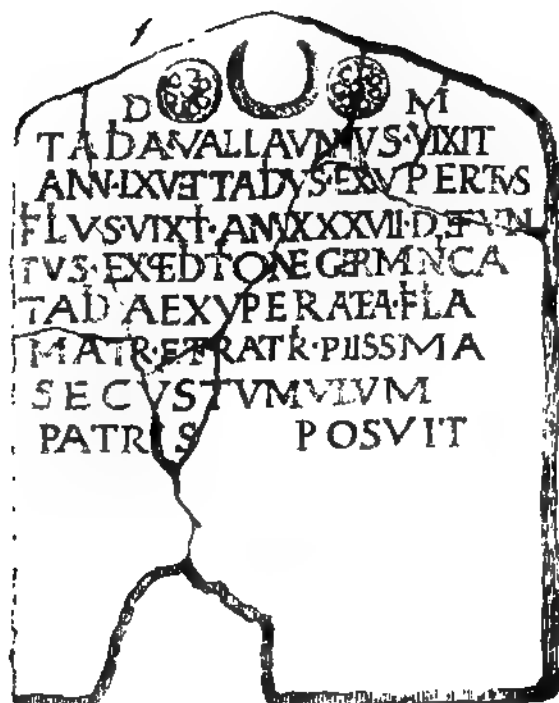 D M
TADIA·VALLAVNIVS·VIXIT
ANN·LXV·ET TADIVS·EXVPERTVS
FILIVS·VIXIT·ANN·XXXVII·DEFVN
TVS·EXPEDITIONE GERMANICA
TADIA EXVPERATA·FILIA
MATRI·ET FRATRI·PIISSIMA
SECVS TVMVLVM
PATRIS POSVIT